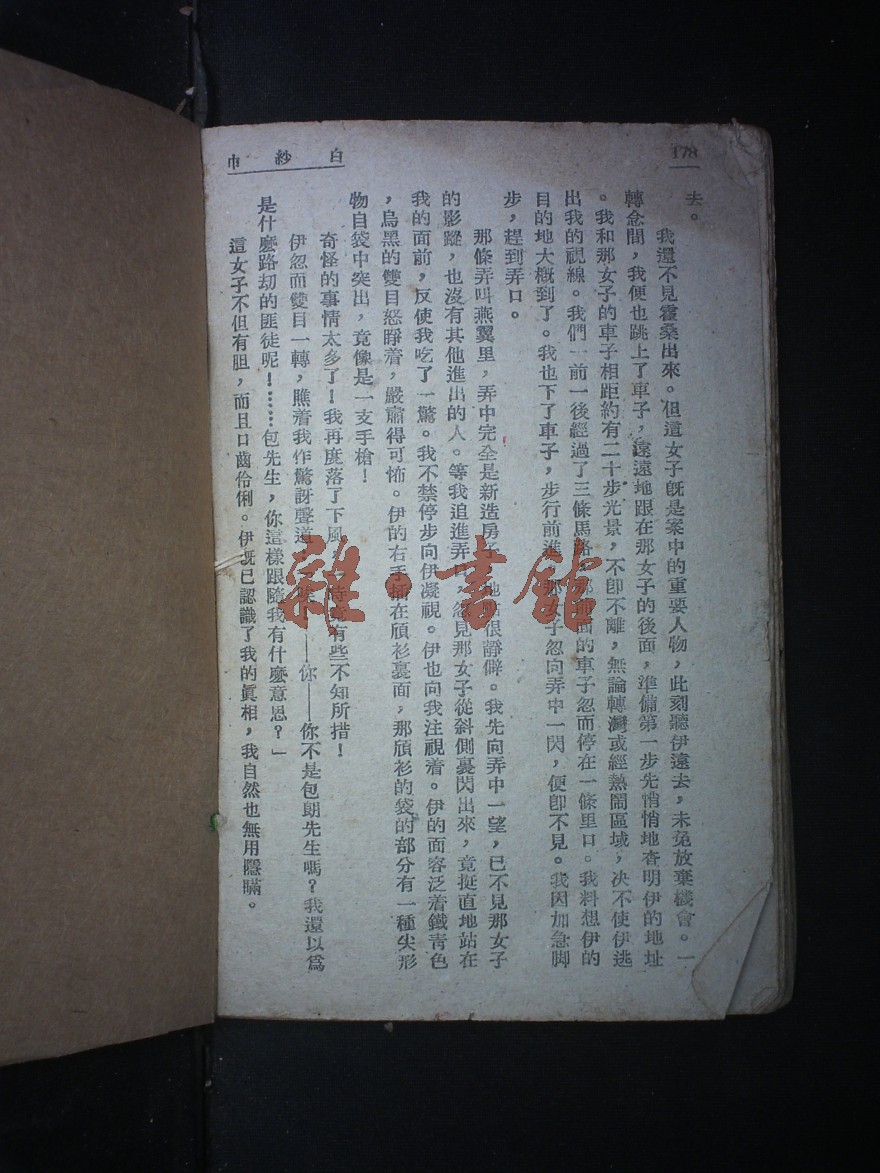 178
白紗巾
去。
我還不見霍桑出來。但這女子旣是案中的重要人物，此刻聽伊遠去，未免放棄機會。一
轉念間，我便也跳上了車子，遠遠地跟在那女子的後面，準備第一步先悄悄地查明伊的地址
。我和那女子的車子相距約有二十步光景，不卽不離，無論轉灣或經熱鬧區域，决不使伊逃
出我的視線。我們一前一後經過了三條馬路，那前面的車子忽而停在一條里口。我料想伊的
目的地大概到了。我也下了車子，步行前進。那女子忽向弄中一閃，便卽不見。我因加急脚
步，趕到弄口。
那條弄叫燕翼里，弄中完全是新造房子，地點很靜僻。我先向弄中一望，已不見那女子
的影蹤，也沒有其他進出的人。等我追進弄口，忽見那女子從斜側裏閃出來，竟挺直地站在
我的面前，反使我吃了一驚。我不禁停步向伊凝視。伊也向我注視着。伊的面容泛着鐵靑色
，烏黑的雙目怒睜着，嚴肅得可怖。伊的右手插在頎衫裏面，那頎衫的袋的部分有一種尖形
物自袋中突出，竟像是一支手槍！
奇怪的事情太多了！我再度落了下風，一時竟有些不知所措！
伊忽而雙目一轉，瞧着我作驚訝聲道：——你——你不是包朗先生嗎？我還以爲
是什麽路劫的匪徒呢！……包先生，你這樣跟隨我有什麽意思？」
這女子不但有胆，而且口齒伶俐。伊旣已認識了我的眞相，我自然也無用隱瞞。
雜·書館